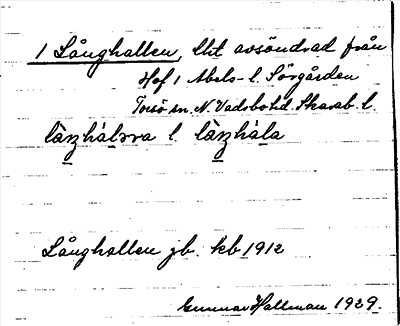 1 Långhallen, Lht avsöndrad från
Hof 1 Abels- l. Sörgården
Torsö sn. N. Vadsbo hd. Skarab. l.
l. 
Långhallen jb. kb 1912
Gunnar Hallman 1929.